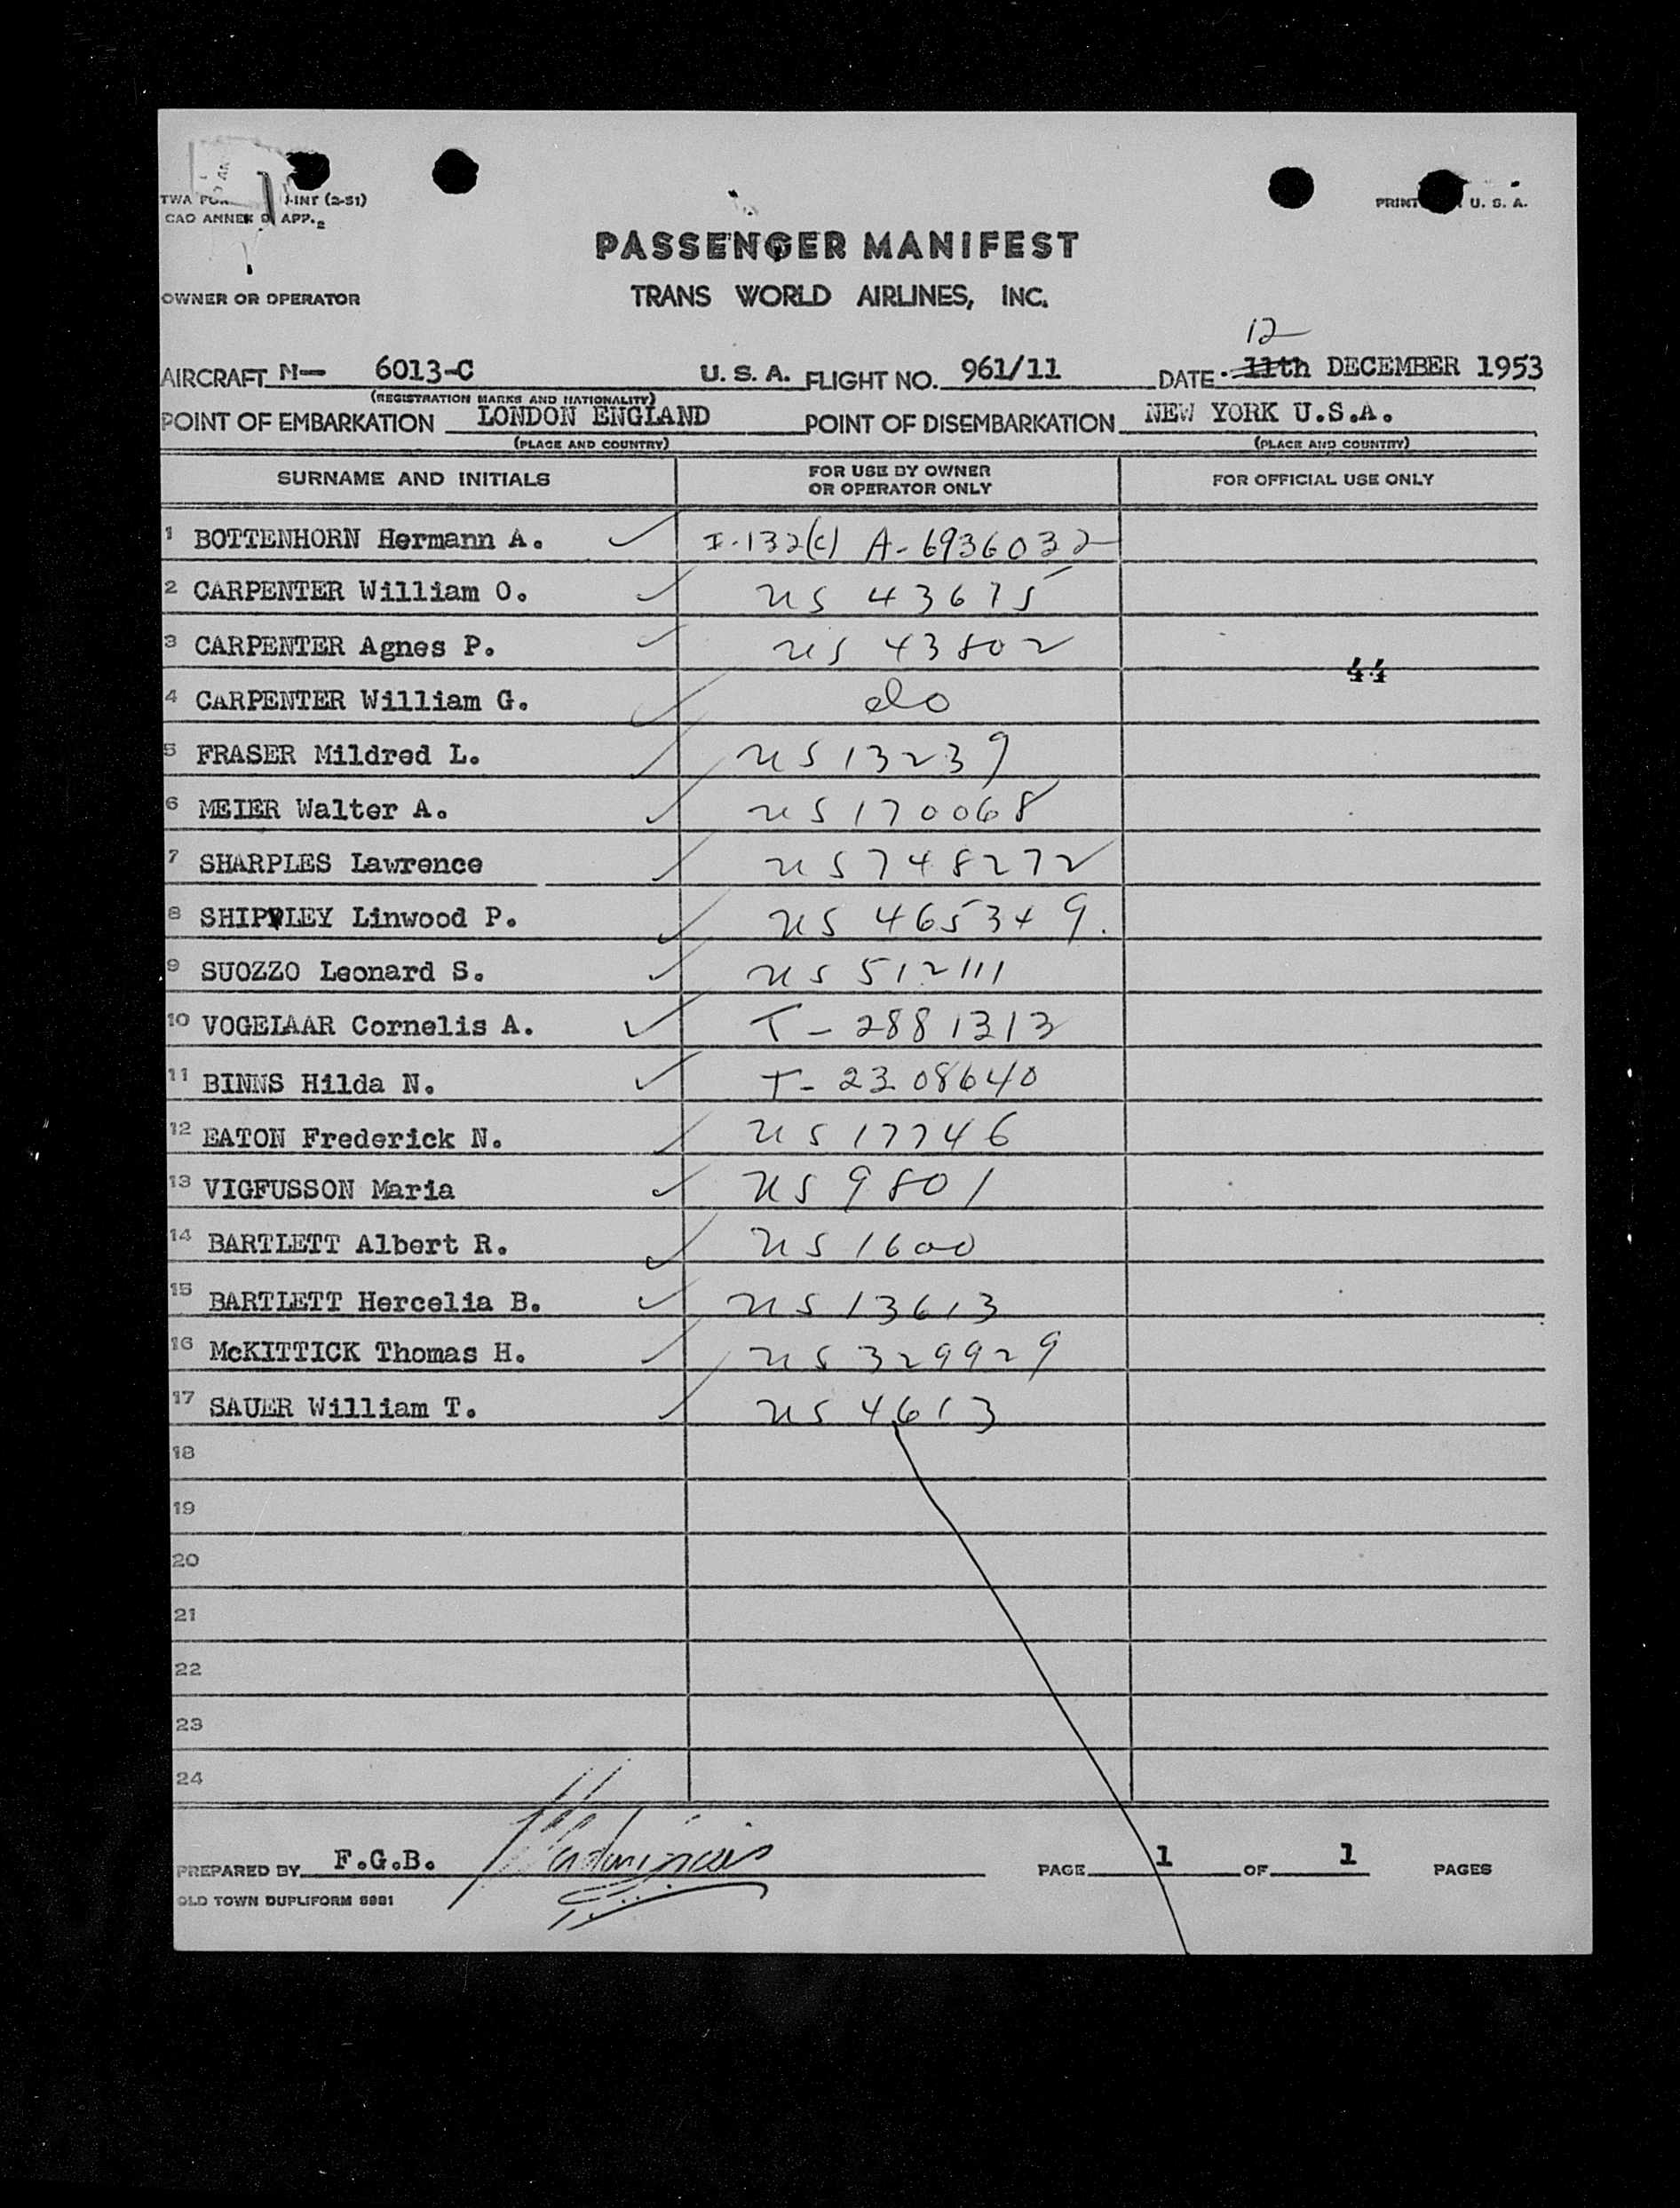 TWA FO J-INT (2-51)
CAO ANNEX 9 APP. 2
PRINT U. S. A.
PASSENGER MANIFEST
OWNER OR OPERATOR TRANS WORLD AIRLINES, INC.
12
AIRCRAFT N- 6013-C U. S. A. FLIGHT NO. 961/11 DATE 11th DECEMBER 1953
(REGISTRATION MARKS AND NATIONALITY)
POINT OF EMBARKATION LONDON ENGLAND POINT OF DISEMBARKATION NEW YORK U.S.A.
(PLACE AND COUNTRY) (PLACE AND COUNTRY)
SURNAME AND INITIALS FOR USE BY OWNER OR OPERATOR ONLY FOR OFFICIAL USE ONLY
1 BOTTENHORN Hermann A. I-132(c) A-6936032
2 CARPENTER William O. US 43675
3 CARPENTER Agnes P. US 43802
44
4 CARPENTER William G. do
5 FRASER Mildred L. US 13239
6 MEIER Walter A. US 170068
7 SHARPLES Lawrence US 748272
8 SHIPPLEY Linwood P. US 465349.
9 SUOZZO Leonard S. US 512111
10 VOGELAAR Cornelis A. T-2881313
11 BINNS Hilda N. T-2308640
12 EATON Frederick N. US 17746
13 VIGFUSSON Maria US 9801
14 BARTLETT Albert R. US 1600
15 BARTLETT Hercelia B. US 13613
16 McKITTICK Thomas H. US 329929
17 SAUER William T. US 4613
18
19
20
21
22
23
24
PREPARED BY F.G.B. PAGE 1 OF 1 PAGES
OLD TOWN DUPLIFORM 9981